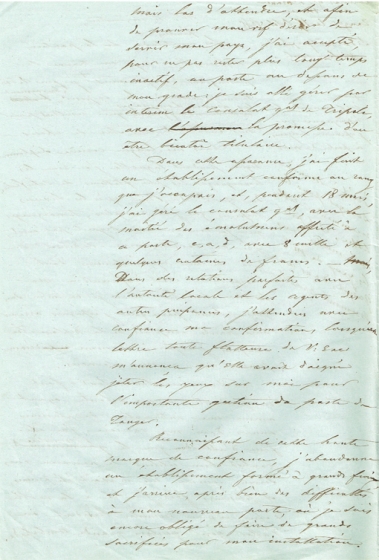 mais las d'attendre, et afin
de prouver mon vif désir de
servir mon pays, j'ai accepté,
pour ne pas rester plus longtemps
inactif, un poste au dessous de
mon grade; je suis allé gérer par
interim le consulat gal de Tripoli,
avec la promesse d'en
être bientôt titulaire.
Dans cette assurance, j'ai fait
un établissement conforme au rang
que j'occupais, et, pendant 18 mois,
j'ai géré le consulat gal, avec la
moitié des émolumens affectés à
ce poste, c. a. d. avec 8 mille et
quelques centaines de francs.
Dans des relations parfaites avec
l'autorité locale et les agents des
autres puissances, j'attendais avec
confiance ma confirmation, lorsqu'une
lettre toute flatteuse de V. Exce
m'annonca qu'Elle avait daigné
jeter les yeux sur moi pour
l'importante gestion du poste de
Tanger.
Reconnaissant de cette haute
marque de confiance, j'abandonnai
un établissement formé à grands frais
et j'arrivai, après bien des difficultés
à mon nouveau poste, où je suis
encore obligé de faire de grands
sacrifices pour mon installation.